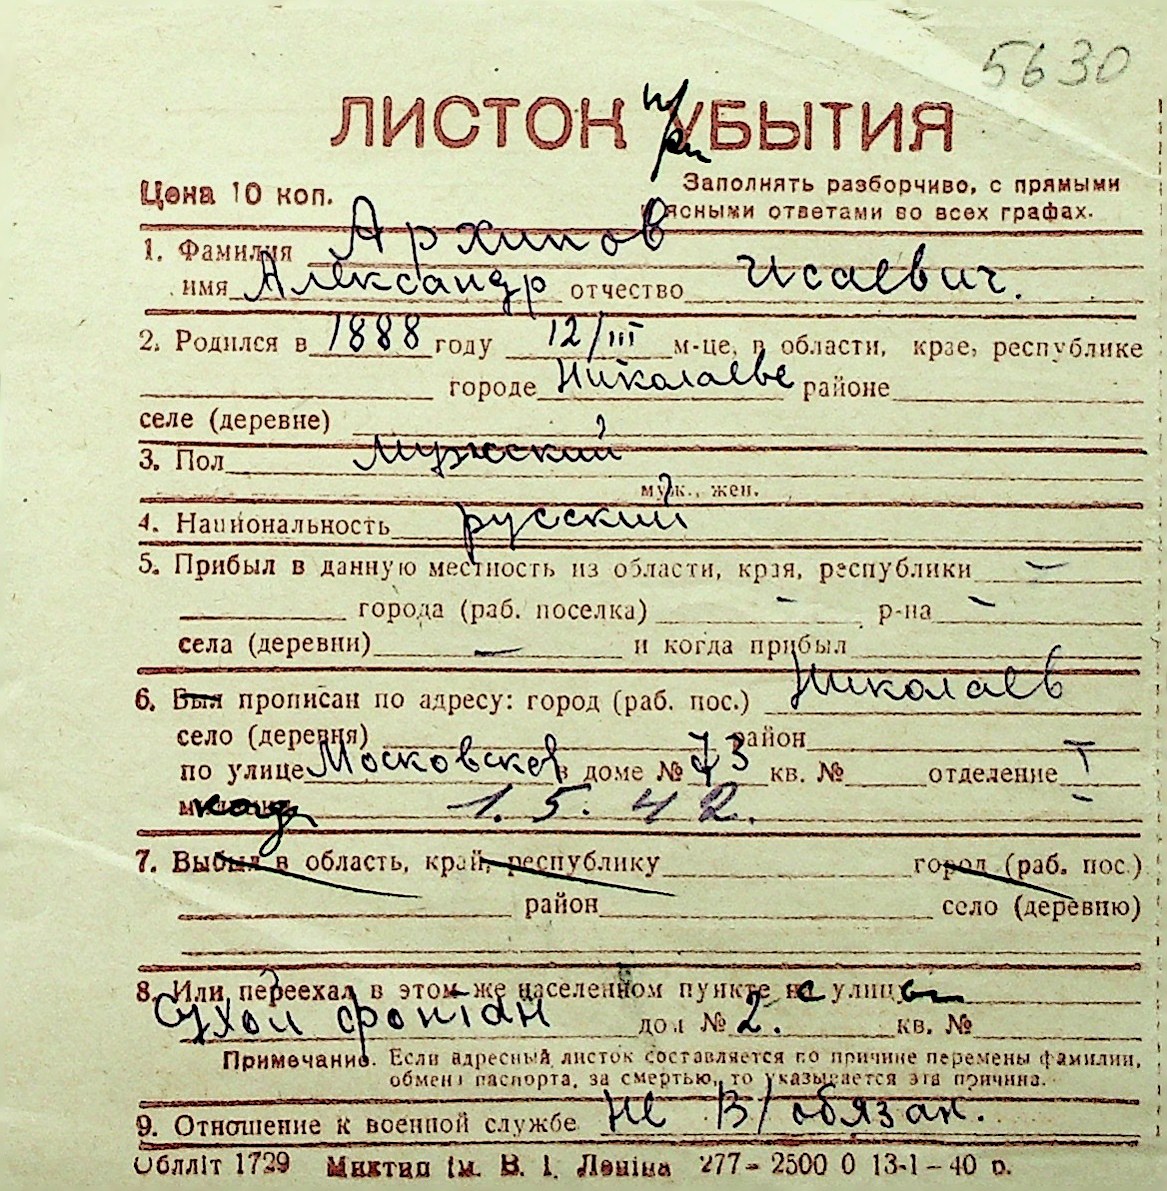 5630
ЛИСТОК УБЫТИЯ
при
Цена 10 коп.
Заполнять разборчиво, с прямыми
и ясными ответами во всех графах.
1. Фамилия Архипов
имя Александр отчество Исаевич.
2. Родился в 1888 году 12/III м-це, в области, крае, республике
городе Николаеве районе
селе (деревне)
3. Пол Мужской
муж., жен.
4. Национальность русский
5. Прибыл в данную местность из области, края, республики —
города (раб. поселка) — р-на —
села (деревни) — и когда прибыл
6. Был прописан по адресу: город (раб. пос.) Николаев
село (деревня) район
по улице Московской в доме № 73 кв. № отделение I
милиции 1. 5. 42. —
7. Выбыл в область, край, республику город (раб. пос.)
район село (деревню)
8. Или переехал в этом же населенном пункте с улицы
Сухой фонтан дом № 2. кв. №
Примечание. Если адресный листок составляется по причине перемены фамилии,
обмена паспорта, за смертью, то указывается эта причина.
9. Отношение к военной службе не в/обязан.
Обллiт 1729 Миктип iм. В. I. Ленiна 277-2500 0 13-1-40 р.